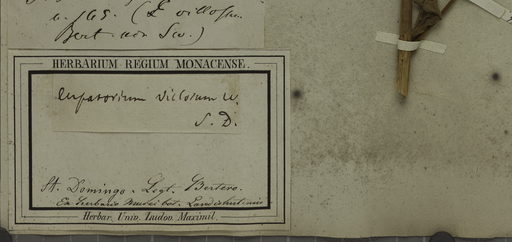 n. 165. (E. villosum
Bert. non Sw.)
HERBARIUM REGIUM MONACENSE.
Eupatorium villosum W.
S. D.
St. Domingo. Legt. Bertero.
Ex herbario Musei bot. Landishutensis
Herbar. Univ. Ludov. Maximil.